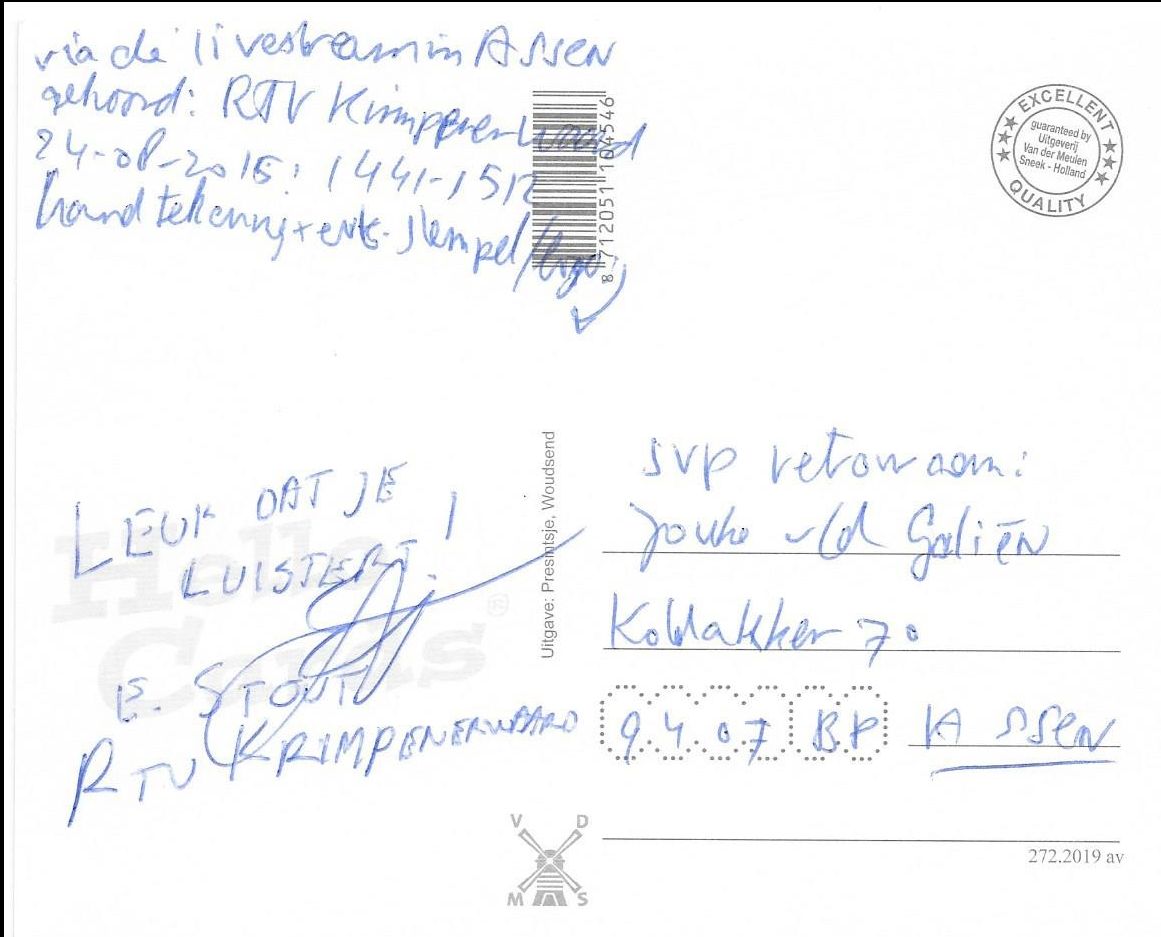 via de livestream in ASSEN
gehoord: RTV Krimpenerwaard
24-08-2015: 1441-1512
handtekening + evt. stempel/logo
8 712051 104546
EXCELLENT
guaranteed by
Uitgeverij
Van der Meulen
Sneek - Holland
QUALITY
LEUK DAT JE
LUISTERT!
E. STOUT
RTV KRIMPENERWAARD
Hello
Cards
®
Uitgave: Presintsje, Woudsend
svp retour aan:
Jouke v/d Galiën
Koldakker 70
9407 BP ASSEN
V D
M S
272.2019 av